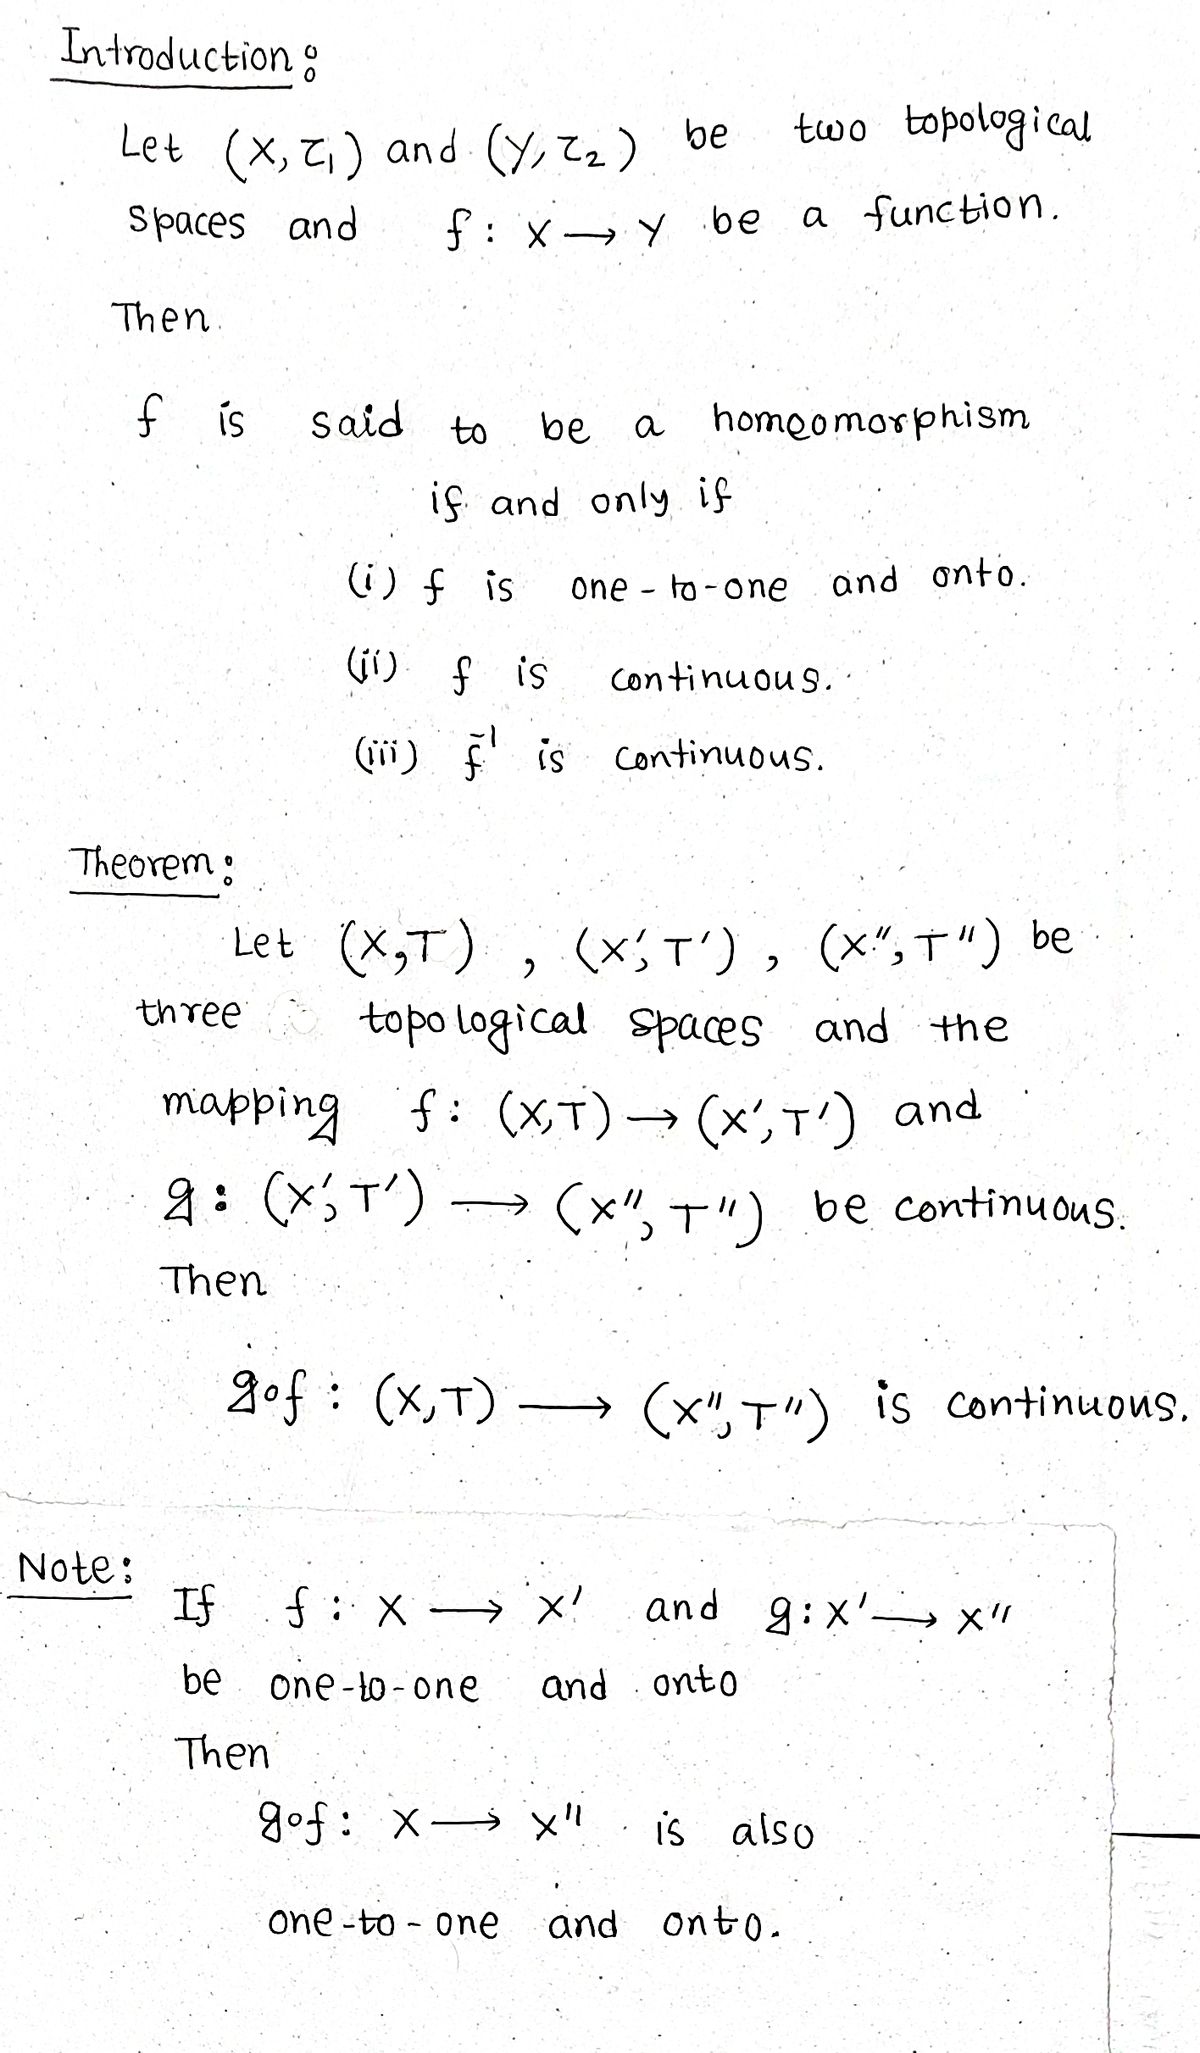 Introduction:
Let (X, τ₁) and (Y, τ₂) be two topological
spaces and f : X → Y be a function.
Then
f is said to be a homeomorphism
if and only if
(i) f is one-to-one and onto.
(ii) f is continuous.
(iii) f⁻¹ is continuous.
Theorem:
Let (X,T) , (X',T') , (X'',T'') be
three topological spaces and the
mapping f: (X,T) → (X',T') and
g: (X',T') → (X'',T'') be continuous.
Then
gof : (X,T) → (X'',T'') is continuous.
Note:
If f : X → X' and g : X' → X''
be one-to-one and onto
Then
gof : X → X'' is also
one-to-one and onto.